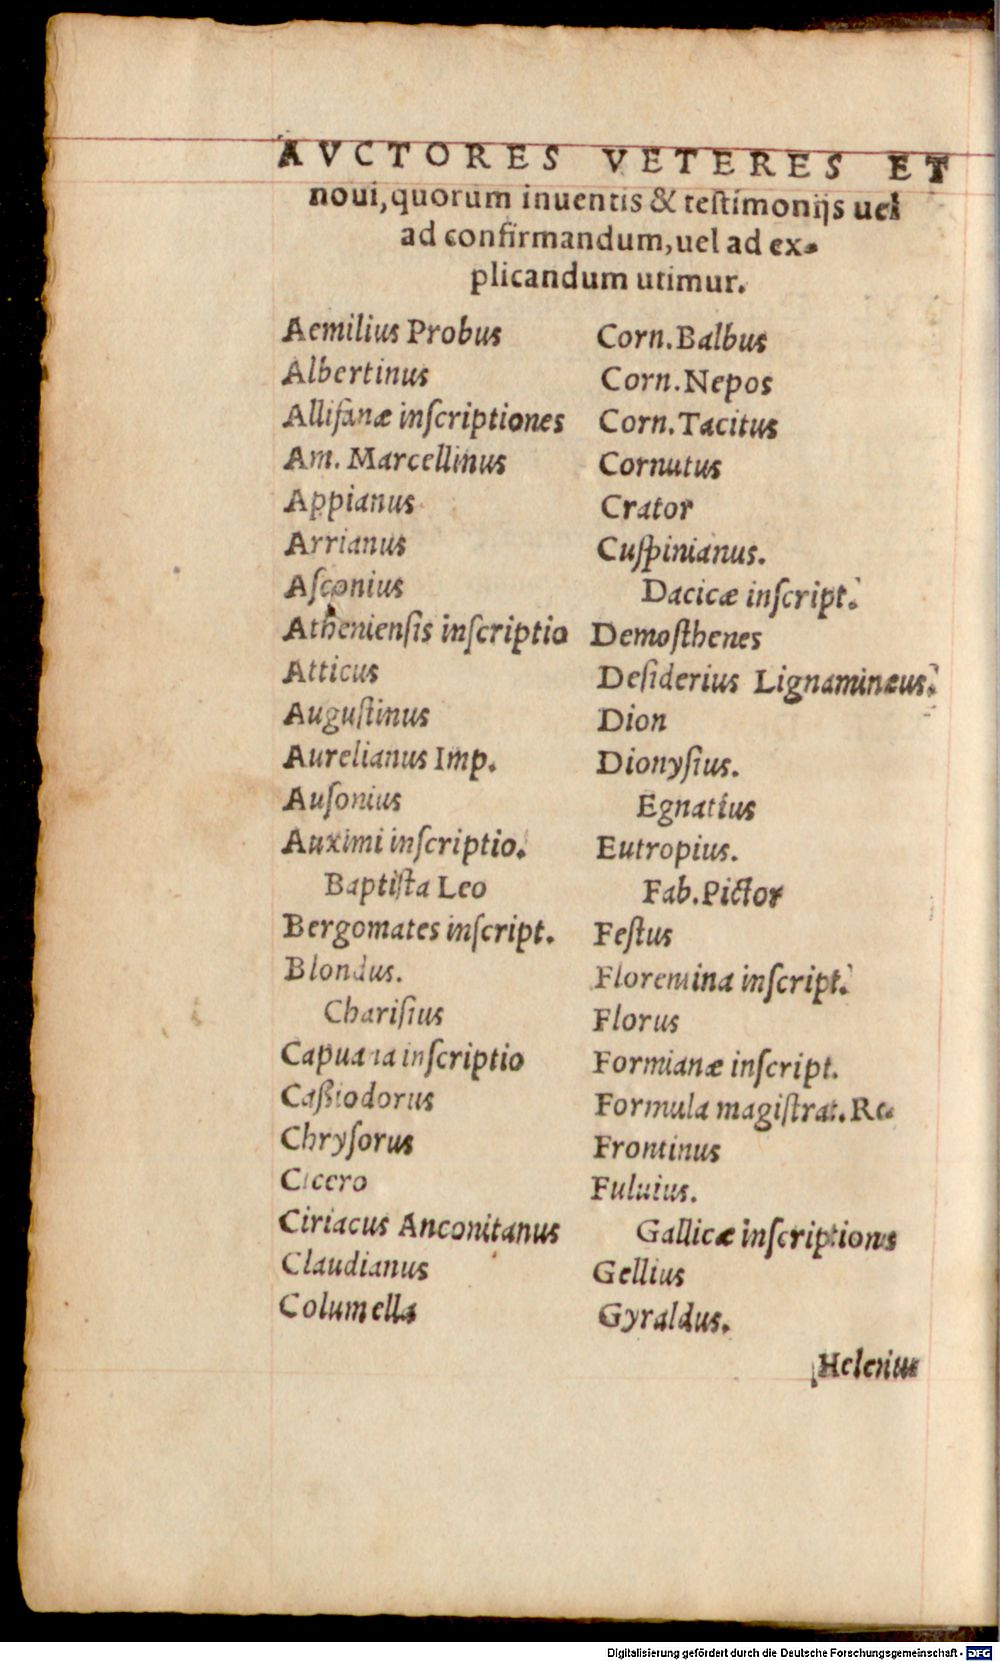 AVCTORES VETERES ET
noui, quorum inuentis & teſtimonijs uel
ad confirmandum, uel ad ex-
plicandum utimur.
Aemilius Probus
Albertinus
Allifanæ inſcriptiones
Am. Marcellinus
Appianus
Arrianus
Aſconius
Athenienſis inſcriptio
Atticus
Auguſtinus
Aurelianus Imp.
Auſonius
Auximi inſcriptio.
Baptiſta Leo
Bergomates inſcript.
Blondus.
Chariſius
Capuana inſcriptio
Caßiodorus
Chryſorus
Cicero
Ciriacus Anconitanus
Claudianus
Columella
Corn. Balbus
Corn. Nepos
Corn. Tacitus
Cornutus
Crator
Cuſpinianus.
Dacicæ inſcript.
Demoſthenes
Deſiderius Lignaminæus.
Dion
Dionyſius.
Egnatius
Eutropius.
Fab. Pictor
Feſtus
Florentina inſcript.
Florus
Formianæ inſcript.
Formula magiſtrat. Ro.
Frontinus
Fuluius.
Gallicæ inſcriptions
Gellius
Gyraldus.
Digitalisierung gefördert durch die Deutsche Forschungsgemeinschaft - DFG